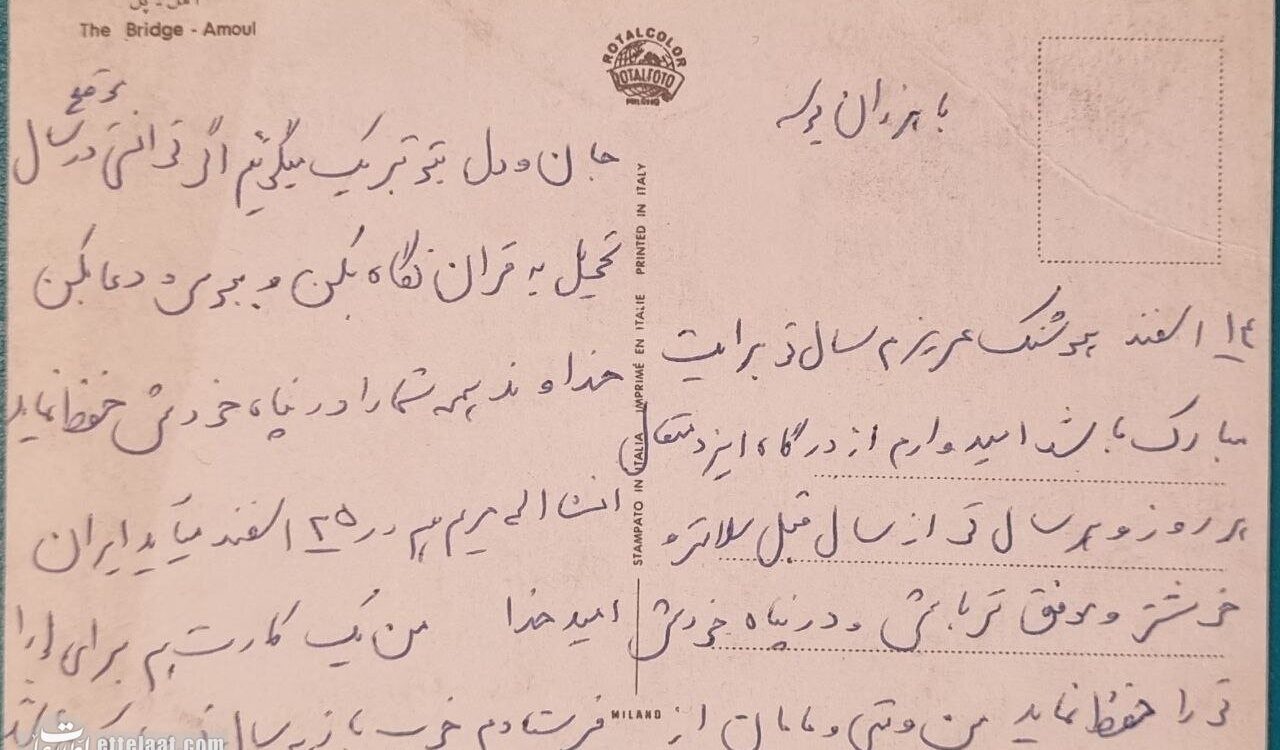 آمل - پل
The Bridge - Amoul
ROTALCOLOR
ROTALFOTO
MILANO
با هزاران بوسه
۱۴ اسفند هوشنگ عزیزم سال نو برایت
مبارک باشد امیدوارم از درگاه ایزد متعال
هر روز و هر سال تو از سال قبل سلامتر و
خوشتر و موفق تر باشی و در پناه خودش
تو را حفظ نماید من و تتی و مامان از
جان و دل بتو تبریک میگوئیم اگر توانستی در سال
موقع
تحویل به قران نگاه بکن و ببوس و دعا بکن
خداوند همه شما را در پناه خودش حفظ نماید
انشااله مریم هم در ۲۵ اسفند میآید ایران
امید خدا من یک کارت هم برای
فرستادم خوب باز سال
STAMPATO IN ITALIA IMPRIMÉ EN ITALIE PRINTED IN ITALY
MILANO
ettelaat.com